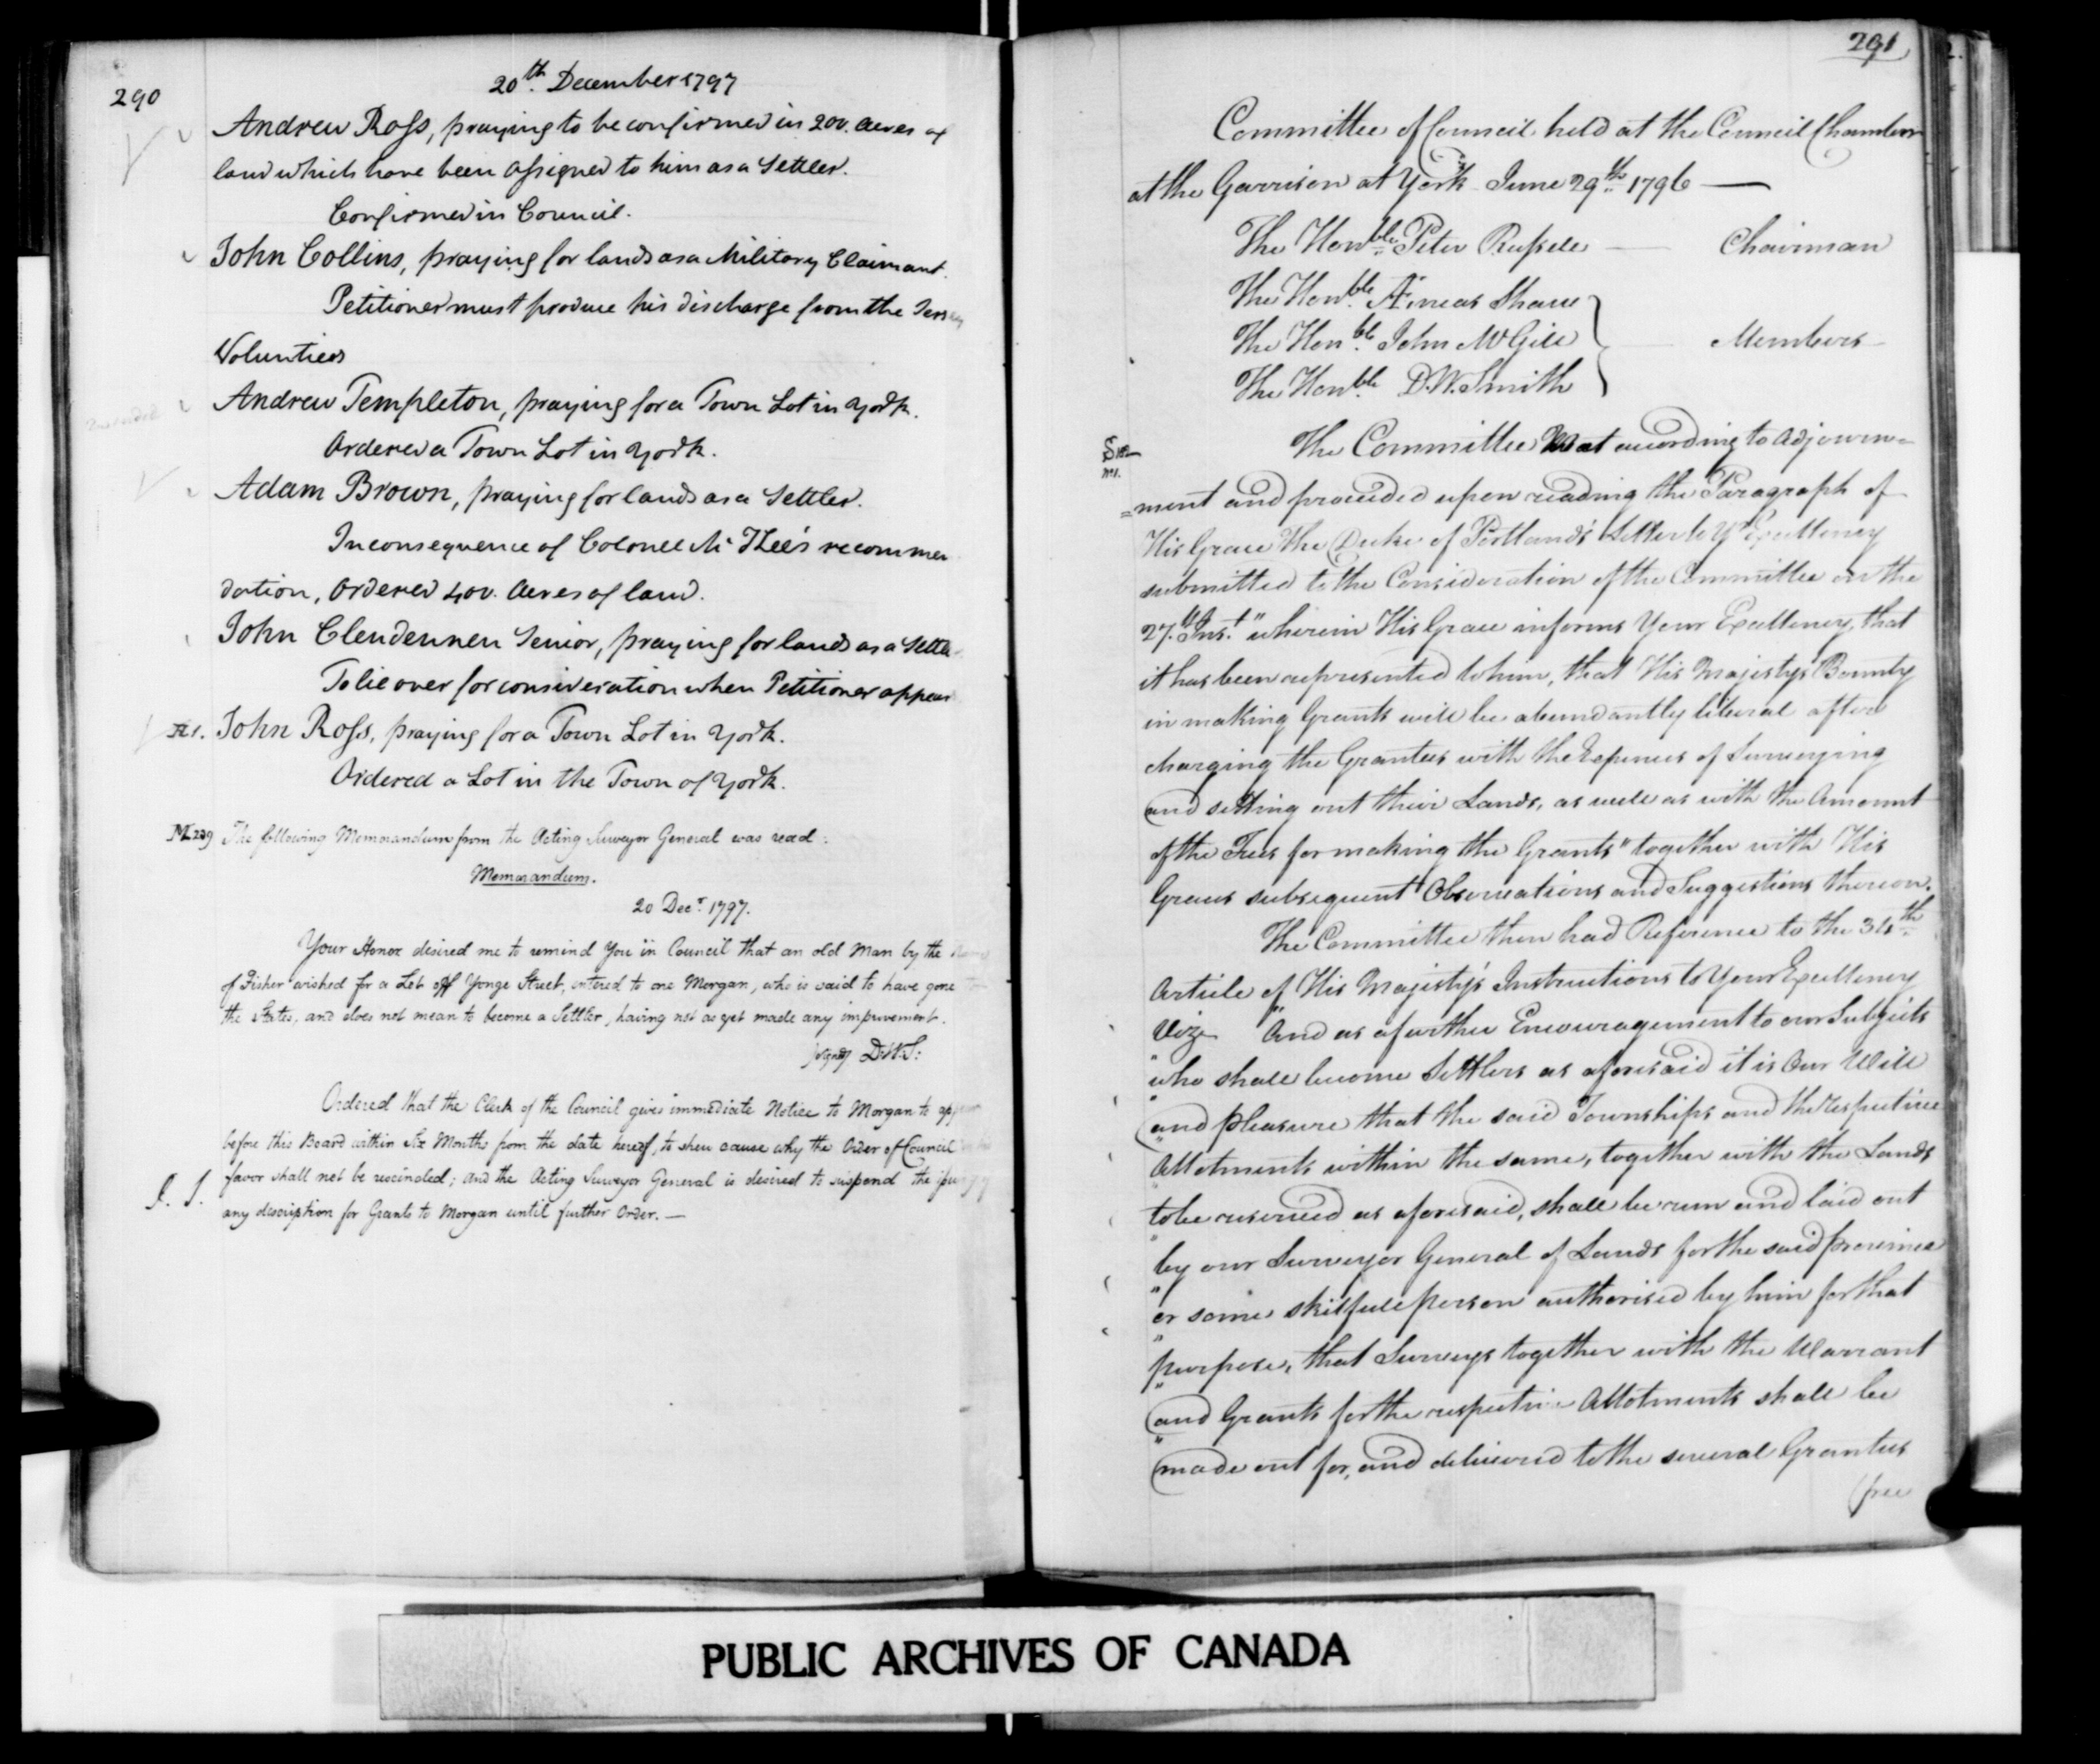 290
20th. December 1797
Andrew Ross, praying to be confirmed in 200. acres of
land which have been assigned to him as a Settler.
Confirmed in Council.
John Collins, praying for lands as a Military Claimant.
Petitioner must produce his discharge from the Jersey
Volunteers
Andrew Templeton, praying for a Town Lot in York.
Ordered a Town Lot in York.
Adam Brown, praying for lands as a Settler.
In consequence of Colonel McKee's recommen
dation, Ordered 400. Acres of land.
John Clendennen Senior, praying for lands as a Settler
To lie over for consideration when Petitioner appears
John Ross, praying for a Town Lot in York.
Ordered a Lot in the Town of York.
The following Memorandum from the Acting Surveyor General was read:
Memorandum.
20 Decr. 1797.
Your Honor desired me to remind You in Council that an old Man by the name
of Fisher wished for a Lot off Yonge Street, entered to one Morgan, who is said to have gone to
the States, and does not mean to become a Settler, having not as yet made any improvement.
signed D.W.S:
Ordered that the Clerk of the Council gives immediate Notice to Morgan to appear
before this Board within Six Months from the date hereof, to shew cause why the Order of Council
favor shall not be rescinded; and the Acting Surveyor General is desired to suspend the
any description for Grants to Morgan until further Order.—
291
Committee of Council held at the Council Chamber
at the Garrison at York June 29th. 1796 —
The Honble. Peter Russell — Chairman
The Honble. Æneas Shaw
The Honble. John McGill — Members
The Honble. D.W. Smith
The Committee Met according to Adjourn=
=ment and proceeded upon reading the Paragraph of
His Grace The Duke of Portland's Letter to Yr. Excellency
submitted to the Consideration of the Committee on the
27.th Inst. "wherein His Grace informs Your Excellency, that
it has been represented to him, that His Majesty's Bounty
in making Grants will be abundantly liberal after
charging the Grantees with the Expences of Surveying
and setting out their Lands, as well as with the Amount
of the Fees for making the Grants" together with His
Graces subsequent Observations and Suggestions thereon.
The Committee then had Reference to the 34th.
Article of His Majesty's Instructions to Your Excellency
Vizt. "And as a further Encouragement to our Subjects
"who shall become Settlers as aforesaid it is Our Will
"and pleasure that the said Townships and the respective
"Allotments within the same, together with the Lands
"to be reserved as aforesaid, shall be run and laid out
"by our Surveyor General of Lands for the said province
"or some skilfull person authorised by him for that
"purpose, that Surveys together with the Warrant
"and Grants for the respective Allotments shall be
"made out for, and delivered to the several Grantees
free
PUBLIC ARCHIVES OF CANADA